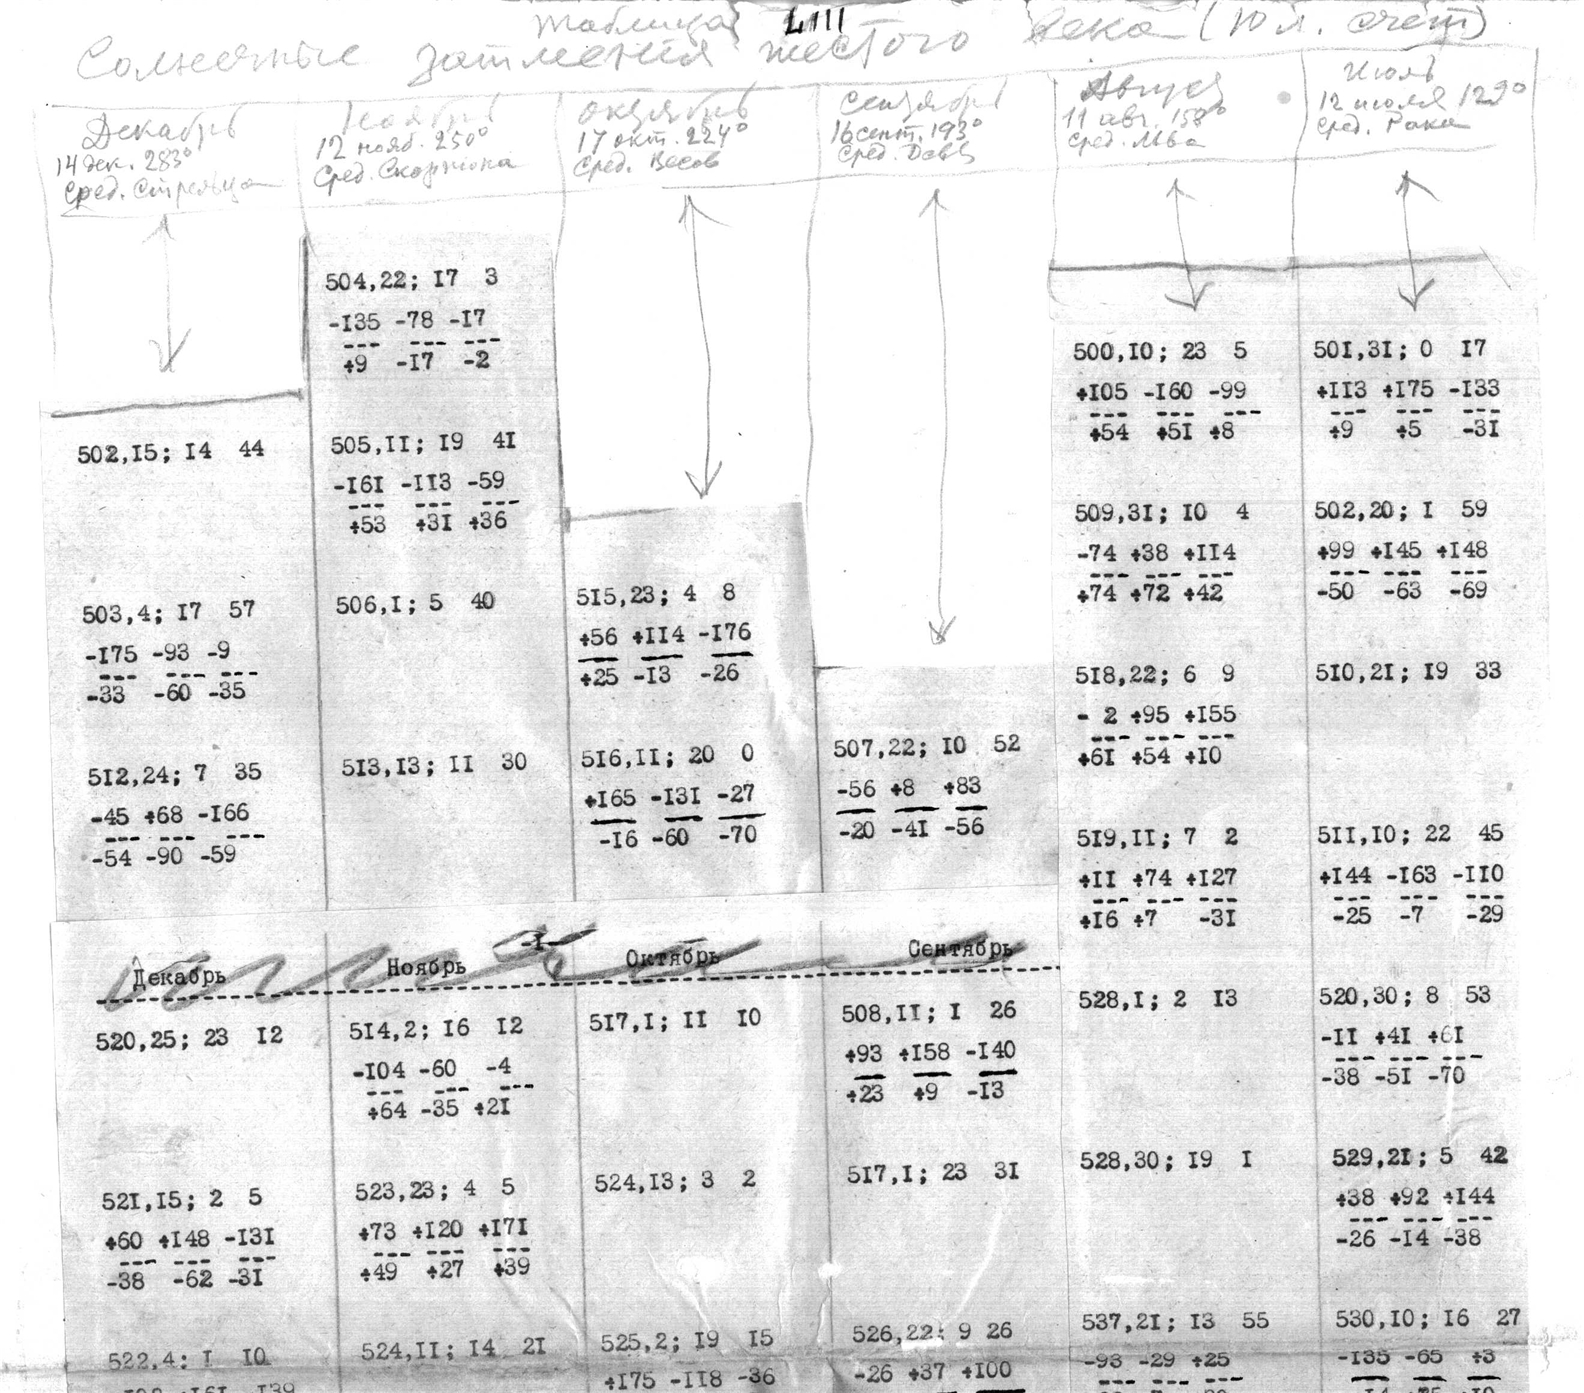 Таблица LIII
Солнечные затмения шестого века (Юл. счет)
Декабрь
14 дек. 283°
Сред. Стрельца
502,I5; I4 44
503,4; I7 57
-I75 -93 -9
-33 -60 -35
5I2,24; 7 35
-45 +68 -I66
-54 -90 -59
Ноябрь
12 нояб. 250°
Сред. Скорпиона
504,22; I7 3
-I35 -78 -I7
+9 -I7 -2
505,II; I9 4I
-I6I -II3 -59
+53 +3I +36
506,I; 5 40
5I3,I3; II 30
Октябрь
17 окт. 224°
Сред. Весов
5I5,23; 4 8
+56 +II4 -I76
+25 -I3 -26
5I6,II; 20 0
+I65 -I3I -27
-I6 -60 -70
Сентябрь
16 сент. 193°
Сред. Девы
507,22; I0 52
-56 +8 +83
-20 -4I -56
Декабрь
520,25; 23 I2
52I,I5; 2 5
+60 +I48 -I3I
-38 -62 -3I
522,4; I I0
Ноябрь
5I4,2; I6 I2
-I04 -60 -4
+64 -35 +2I
523,23; 4 5
+73 +I20 +I7I
+49 +27 +39
524,II; I4 2I
Октябрь
5I7,I; II I0
524,I3; 3 2
525,2; I9 I5
+I75 -II8 -36
Сентябрь
508,II; I 26
+93 +I58 -I40
+23 +9 -I3
5I7,I; 23 3I
526,22; 9 26
-26 +37 +I00
Август
11 авг. 158°
Сред. Льва
500,I0; 23 5
+I05 -I60 -99
+54 +5I +8
509,3I; I0 4
-74 +38 +II4
+74 +72 +42
5I8,22; 6 9
- 2 +95 +I55
+6I +54 +I0
5I9,II; 7 2
+II +74 +I27
+I6 +7 -3I
528,I; 2 I3
528,30; I9 I
537,2I; I3 55
-93 -29 +25
Июль
12 июля 129°
Сред. Рака
50I,3I; 0 I7
+II3 +I75 -I33
+9 +5 -3I
502,20; I 59
+99 +I45 +I48
-50 -63 -69
5I0,2I; I9 33
5II,I0; 22 45
+I44 -I63 -II0
-25 -7 -29
520,30; 8 53
-II +4I +6I
-38 -5I -70
529,2I; 5 42
+38 +92 +I44
-26 -I4 -38
530,I0; I6 27
-I35 -65 +3